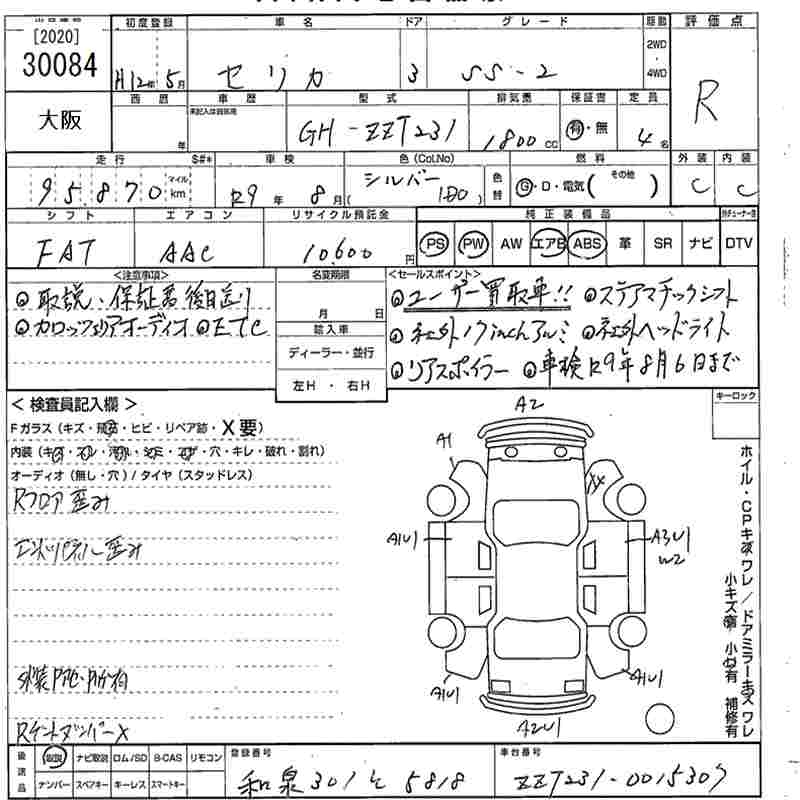 [2020]
30084
大阪
初度登録
車名
ドア
グレード
駆動
評価点
H12年 5月
セリカ
3
SS-2
2WD
4WD
R
西暦
車歴
型式
排気量
保証書
定員
年
GH-ZZT231
1800 cc
有・無
4名
走行
S#*
車検
色(Col.No)
色替
燃料
外装
内装
95,870
マイル
km
R9年 8月
シルバー
1D0
G・D・電気( その他 )
C
C
シフト
エアコン
リサイクル預託金
純正装備品
FAT
AAC
10,600円
PS
PW
AW
エアB
ABS
革
SR
ナビ
DTV
<注意事項>
◎取説、保証書後日送り
◎カロッツェリアオーディオ ◎ETC
名変期限
月 日
輸入車
ディーラー・並行
左H ・ 右H
<セールスポイント>
◎ユーザー買取車!! ◎ステアマチックシフト
◎社外17inchアルミ ◎社外ヘッドライト
◎リアスポイラー ◎車検R9年8月6日まで
キーロック
<検査員記入欄>
Fガラス(キズ・飛石・ヒビ・リペア跡・X要)
内装(キズ・スレ・汚れ・シミ・コゲ・穴・キレ・破れ・割れ)
オーディオ(無し・穴)/タイヤ(スタッドレス)
Rフロア歪み
エンドパネル歪み
Rゲートダンパー X
A2
A1
A1U1
A3U1
W2
A1U1
A1U1
A2U1
ホイル・CPキズ ワレ/ドアミラーキズ ワレ
後送品
取説
ナビ取説
ロム/SD
B-CAS
リモコン
ナンバー
スペアキー
キーレス
スマートキー
登録番号
和泉 301 そ 5818
車台番号
ZZT231-0015307